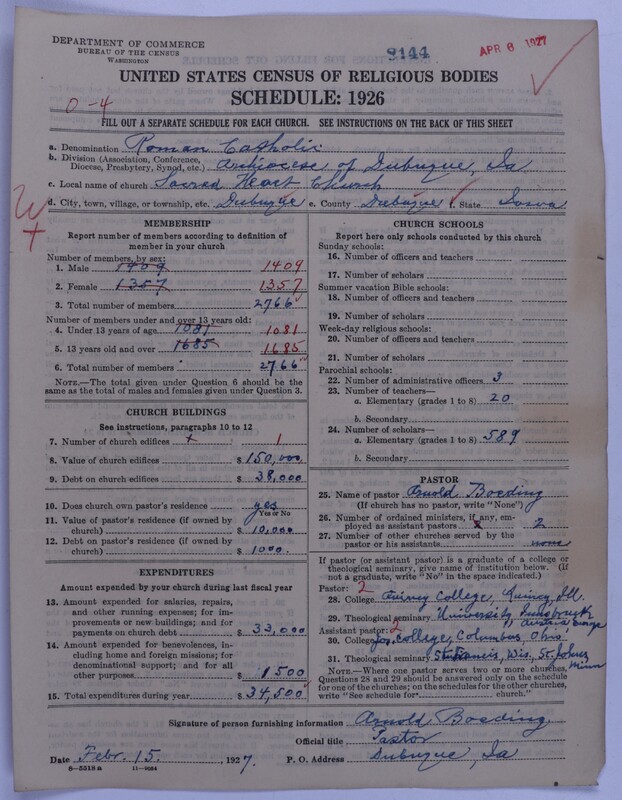 DEPARTMENT OF COMMERCE
BUREAU OF THE CENSUS
WASHINGTON
9144
APR 8 1927
UNITED STATES CENSUS OF RELIGIOUS BODIES
SCHEDULE: 1926
0-4
FILL OUT A SEPARATE SCHEDULE FOR EACH CHURCH. SEE INSTRUCTIONS ON THE BACK OF THIS SHEET
a. Denomination Roman Catholic
b. Division (Association, Conference, Diocese, Presbytery, Synod, etc.) Archiocese of Dubuque, Ia
c. Local name of church Sacred Heart Church
d. City, town, village, or township, etc. Dubuque e. County Dubuque f. State Iowa
MEMBERSHIP
Report number of members according to definition of
member in your church
Number of members, by sex:
1. Male 1409 1409
2. Female 1357 1357
3. Total number of members 2766
Number of members under and over 13 years old:
4. Under 13 years of age 1081 1081
5. 13 years old and over 1685 1685
6. Total number of members 2766
NOTE.—The total given under Question 6 should be
the same as the total of males and females given under Question 3.
CHURCH BUILDINGS
See instructions, paragraphs 10 to 12
7. Number of church edifices 1
8. Value of church edifices $ 150,000
9. Debt on church edifices $ 38,000
10. Does church own pastor's residence yes
Yes or No
11. Value of pastor's residence (if owned by
church) $ 10,000
12. Debt on pastor's residence (if owned by
church) $ 1000.
EXPENDITURES
Amount expended by your church during last fiscal year
13. Amount expended for salaries, repairs,
and other running expenses; for im-
provements or new buildings; and for
payments on church debt $ 33,000
14. Amount expended for benevolences, in-
cluding home and foreign missions; for
denominational support; and for all
other purposes $ 1500
15. Total expenditures during year $ 34,500
CHURCH SCHOOLS
Report here only schools conducted by this church
Sunday schools:
16. Number of officers and teachers
17. Number of scholars
Summer vacation Bible schools:
18. Number of officers and teachers
19. Number of scholars
Week-day religious schools:
20. Number of officers and teachers
21. Number of scholars
Parochial schools:
22. Number of administrative officers 3
23. Number of teachers—
a. Elementary (grades 1 to 8) 20
b. Secondary
24. Number of scholars—
a. Elementary (grades 1 to 8) 589
b. Secondary
PASTOR
25. Name of pastor Arnold Boeding
(If church has no pastor, write "None")
26. Number of ordained ministers, if any, em-
ployed as assistant pastors 2
27. Number of other churches served by the
pastor or his assistants none
If pastor (or assistant pastor) is a graduate of a college or
theological seminary, give name of institution below. (If
not a graduate, write "No" in the space indicated.)
Pastor: 2
28. College Quincy College, Quincy, Ill.
29. Theological seminary University Innsbruck
Austria Europe
Assistant pastor: 2
30. College Jos. College, Columbus, Ohio
31. Theological seminary St. Francis, Wis. St. Johns
Minn
NOTE.—Where one pastor serves two or more churches,
Questions 28 and 29 should be answered only on the schedule
for one of the churches; on the schedules for the other churches,
write "See schedule for church."
Signature of person furnishing information Arnold Boeding
Official title Pastor
Date Febr. 15. 1927. P. O. Address Dubuque, Ia
8-5518 a 11-9054